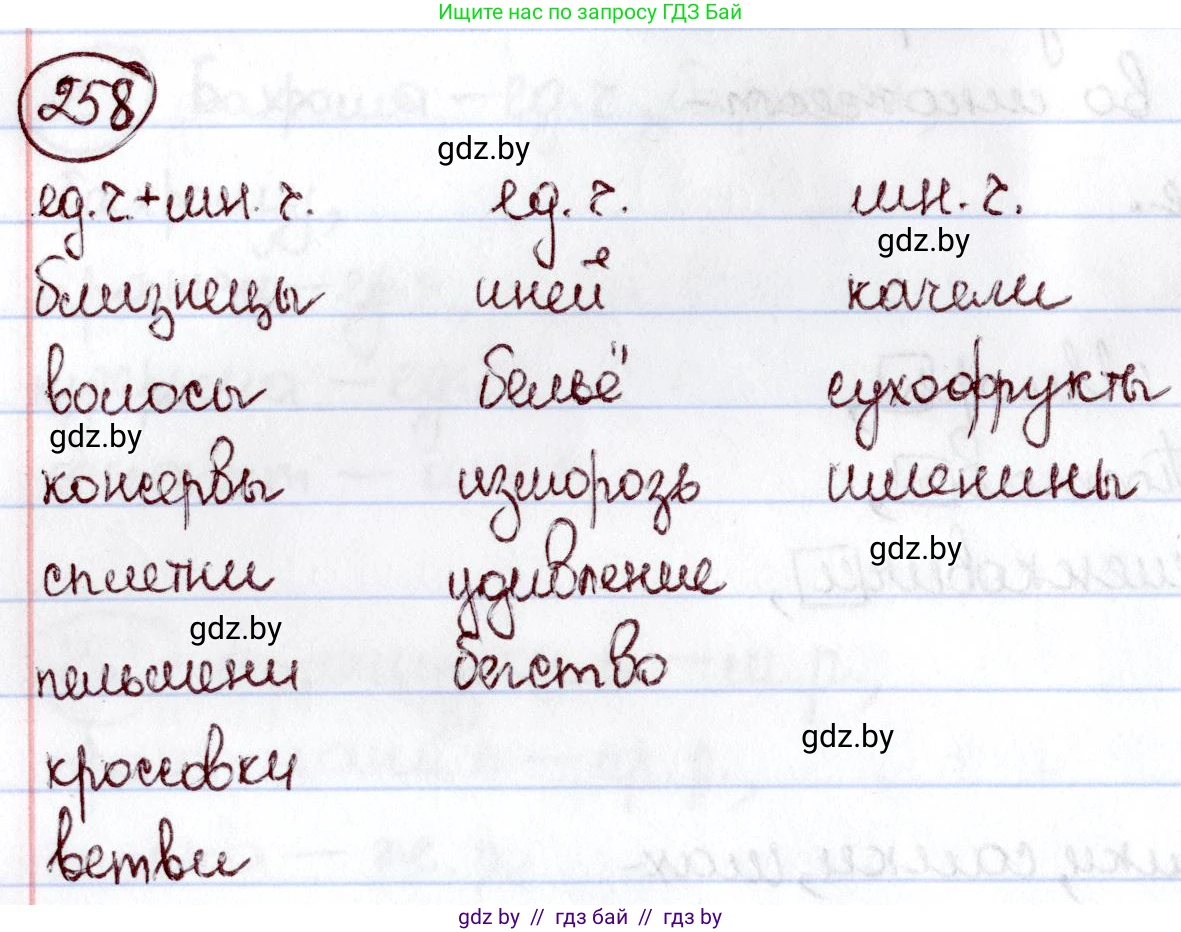 Ищите нас по запросу ГДЗ Бай
258
gdz.by
ед.ч.+мн.ч. ед.ч. мн.ч.
gdz.by
близнецы иней качели
волосы бельё сухофрукты
gdz.by
консервы изморозь именины
gdz.by
сплетни удивление
gdz.by
пельмени бегство
gdz.by
кроссовки
ветви
gdz by // гдз бай // gdz by